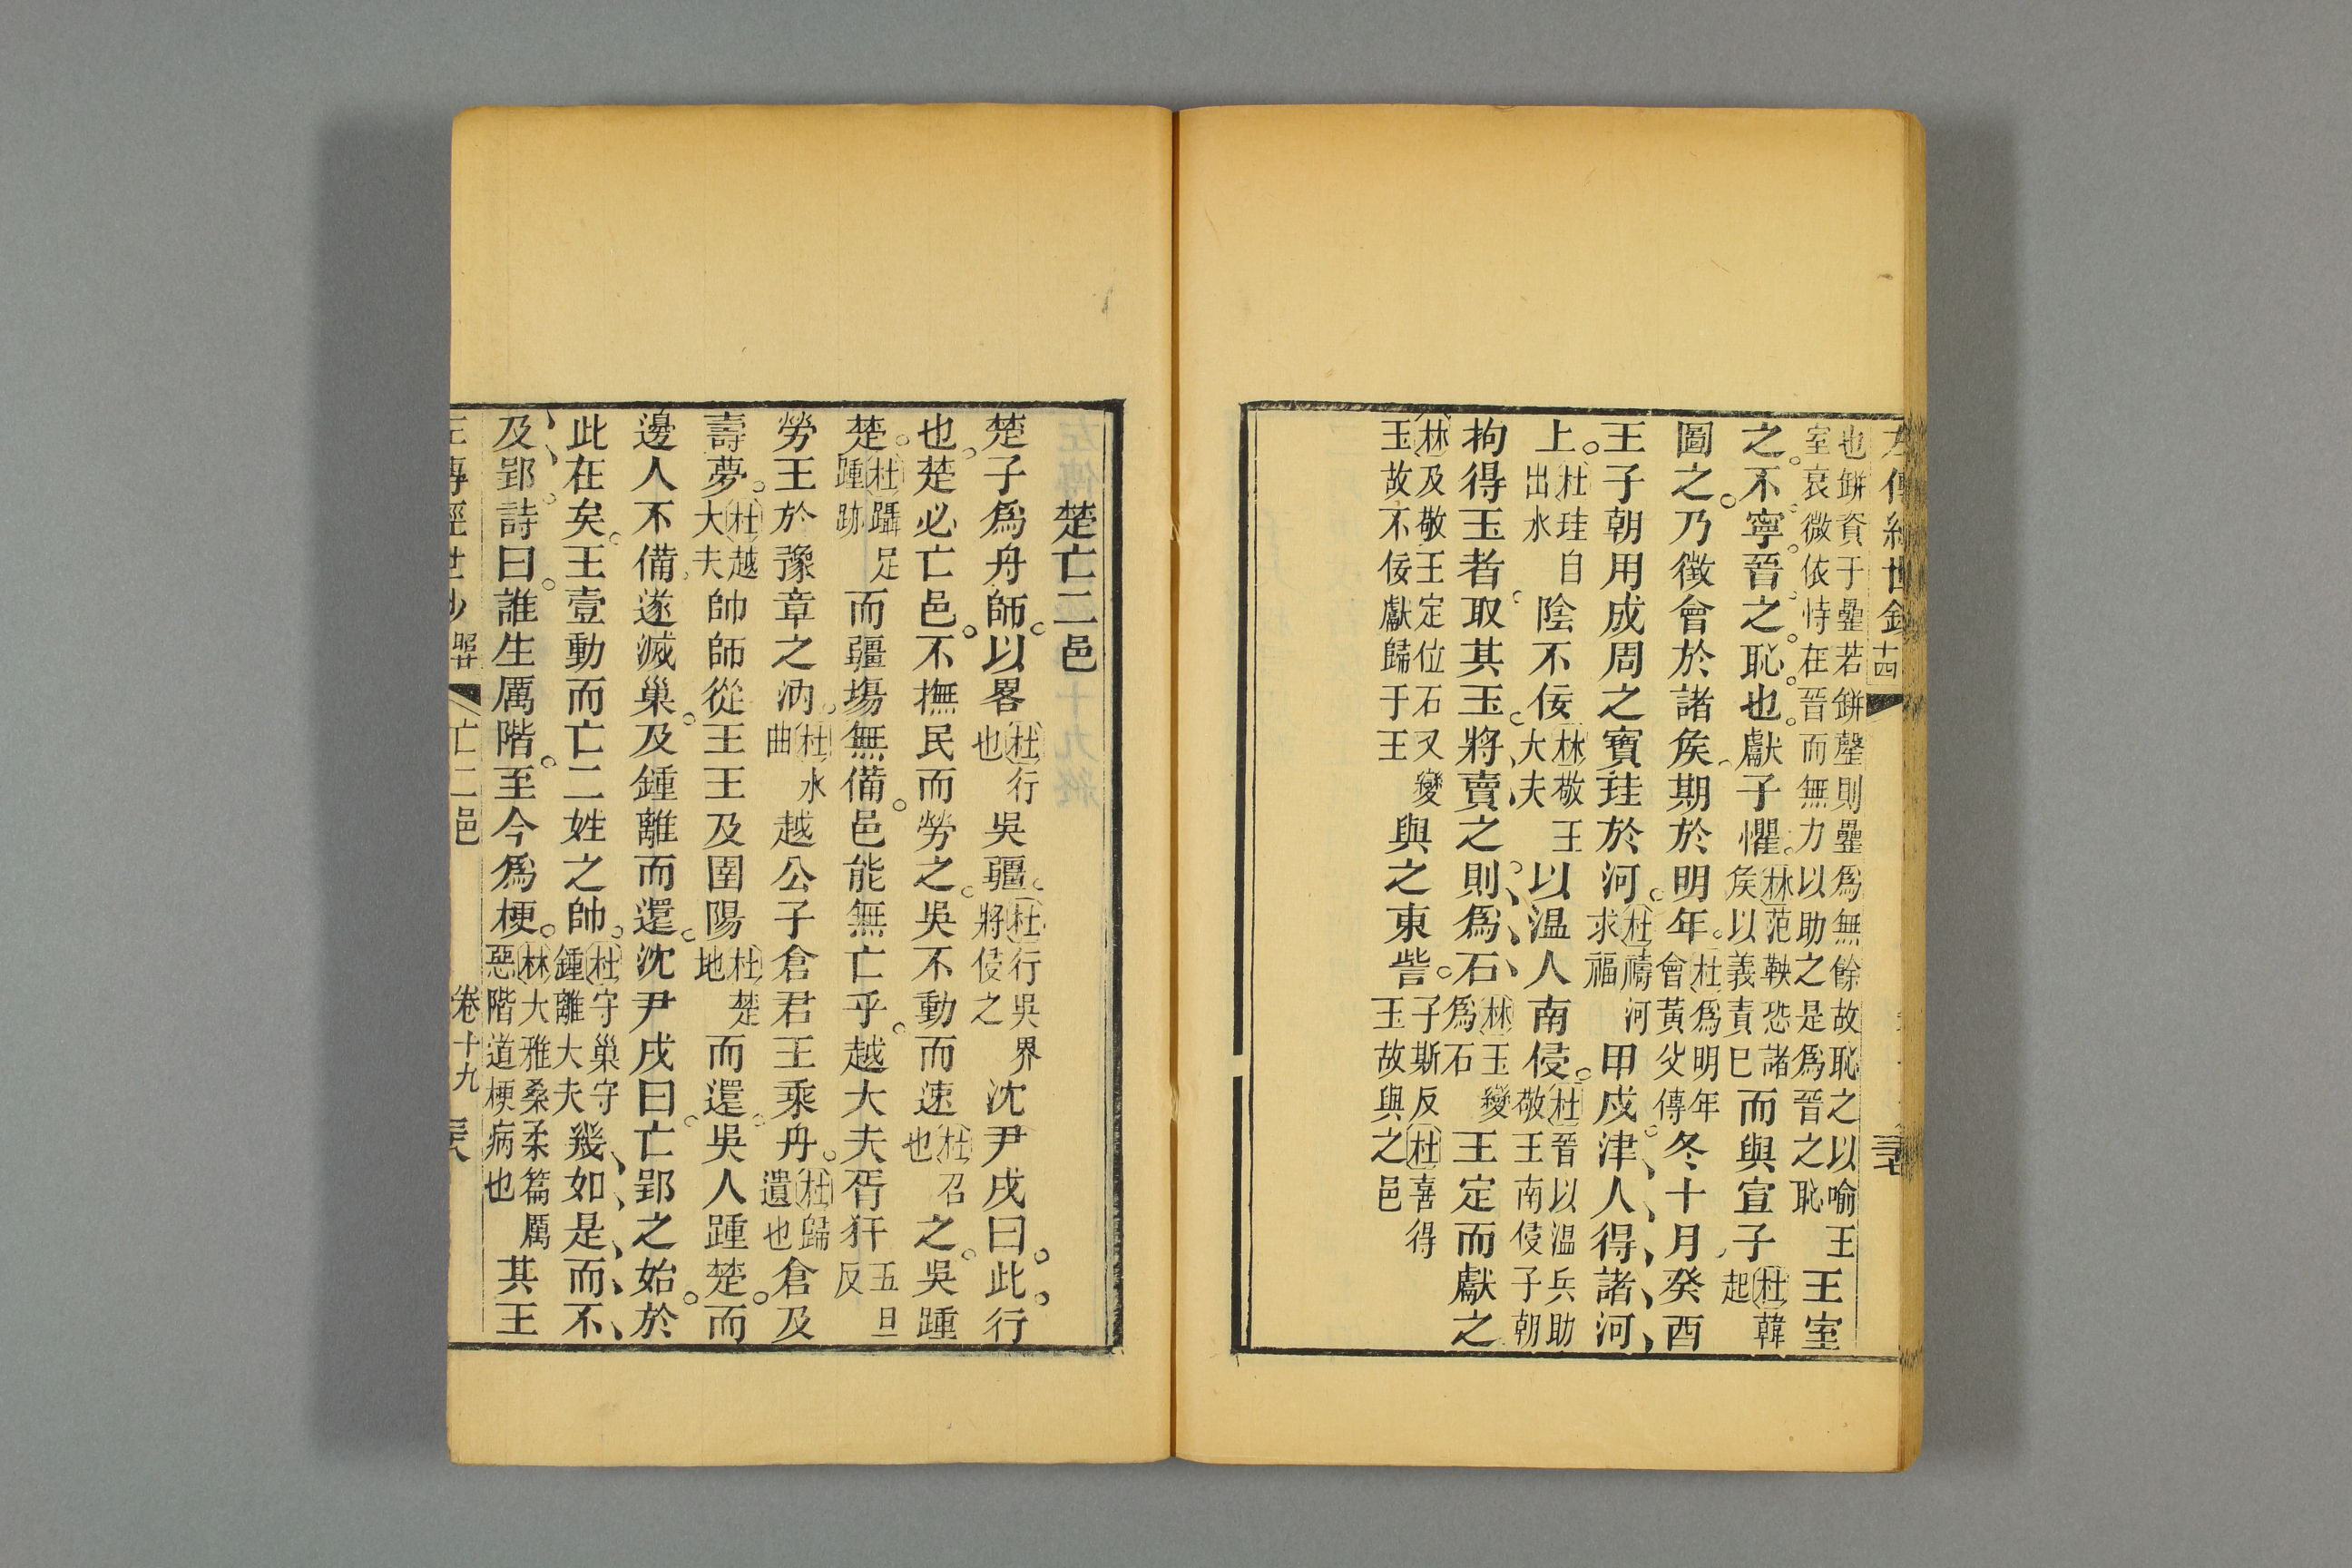 左傳經世鈔
也缾資于罍若缾罄則罍爲無餘故恥之以喻王
室衰微依恃在晉而無力以助之是爲晉之恥王室
之不寧晉之恥也獻子懼林范鞅恐諸矦以義責已而與宣子杜韓起
圖之乃徵會於諸矦期於明年杜爲明年會黃父傳冬十月癸酉
王子朝用成周之寶珪於河杜禱河求福甲戌津人得諸河
上杜珪自出水陰不佞林敬王大夫以温人南侵杜晉以温兵助敬王南侵子朝
拘得玉者取其玉將賣之則爲石林玉變爲石王定而獻之
林及敬王定位石又變玉故不佞獻歸于王與之東訾子斯反杜喜得玉故與之邑
楚亡二邑
楚子爲舟師以畧杜行也吳疆杜行吳界將侵之沈尹戌曰此行
也楚必亡邑不撫民而勞之吳不動而速杜召也之吳踵
楚杜躡足踵跡而疆場無備邑能無亡乎越大夫胥犴五旦反
勞王於豫章之汭杜水曲越公子倉君王乘舟杜歸遺也倉及
壽夢杜越大夫帥師從王王及圉陽杜楚地而還吳人踵楚而
邊人不備遂滅巢及鍾離而還沈尹戌曰亡郢之始於
此在矣王壹動而亡二姓之帥杜守巢守鍾離大夫幾如是而不
及郢詩曰誰生厲階至今爲梗林大雅桑柔篇厲惡階道梗病也其王
亡二邑 卷十九